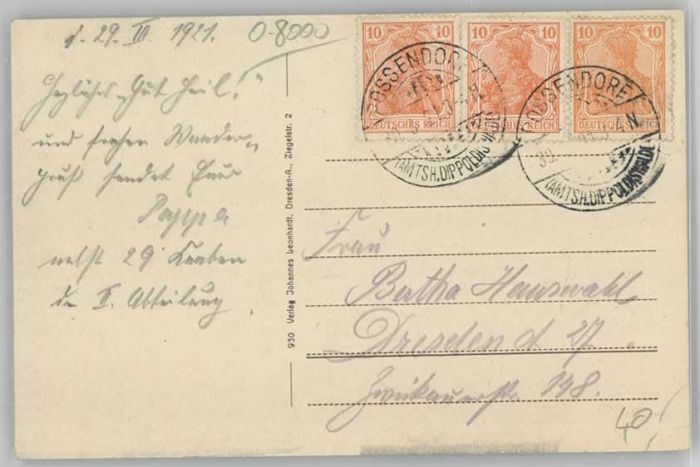 d. 29. III. 1921.
0-8000
Herzliches „Gut Heil!"
und frohen Wander-
gruß sendet Euer
Pappa
nebst 29 Knaben
der II. Abteilung
930 Verlag Johannes Leonhardt, Dresden-A., Ziegelstr. 2
10 10
DEUTSCHES REICH
10 10
DEUTSCHES REICH
10 10
DEUTSCHES REICH
POSSENDORF
(AMTSH. DIPPOLDISWALDE)
POSSENDORF
(AMTSH. DIPPOLDISWALDE)
Frau
Bertha Hauswald
Dresden A 27
Zwickauerstr. 148.
40,